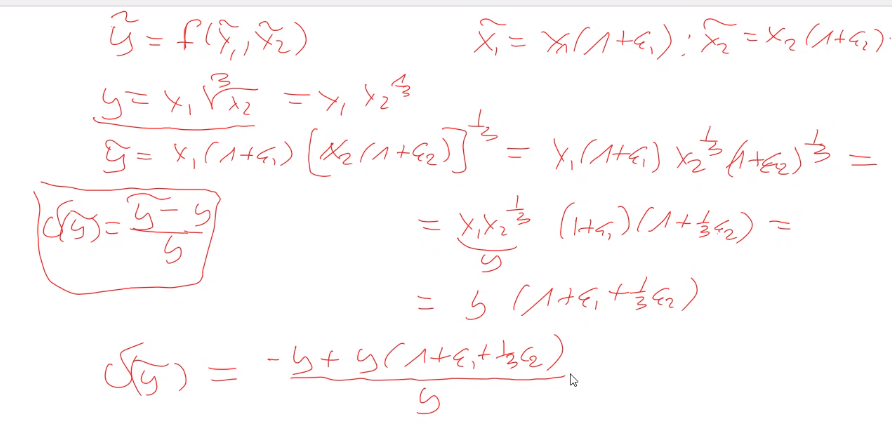 ỹ = f(x̃₁, x̃₂)    x̃₁ = x₁(1+ε₁) ; x̃₂ = x₂(1+ε₂)
y = x₁ ∛x₂ = x₁ x₂^(1/3)
ỹ = x₁(1+ε₁) [x₂(1+ε₂)]^(1/3) = x₁(1+ε₁) x₂^(1/3) (1+ε₂)^(1/3) =
δ(ỹ) = (ỹ − y)/y    = x₁x₂^(1/3) (1+ε₁)(1+1/3 ε₂) =
y
= y (1+ε₁+1/3 ε₂)
δ(ỹ) = (−y + y(1+ε₁+1/3 ε₂))/y